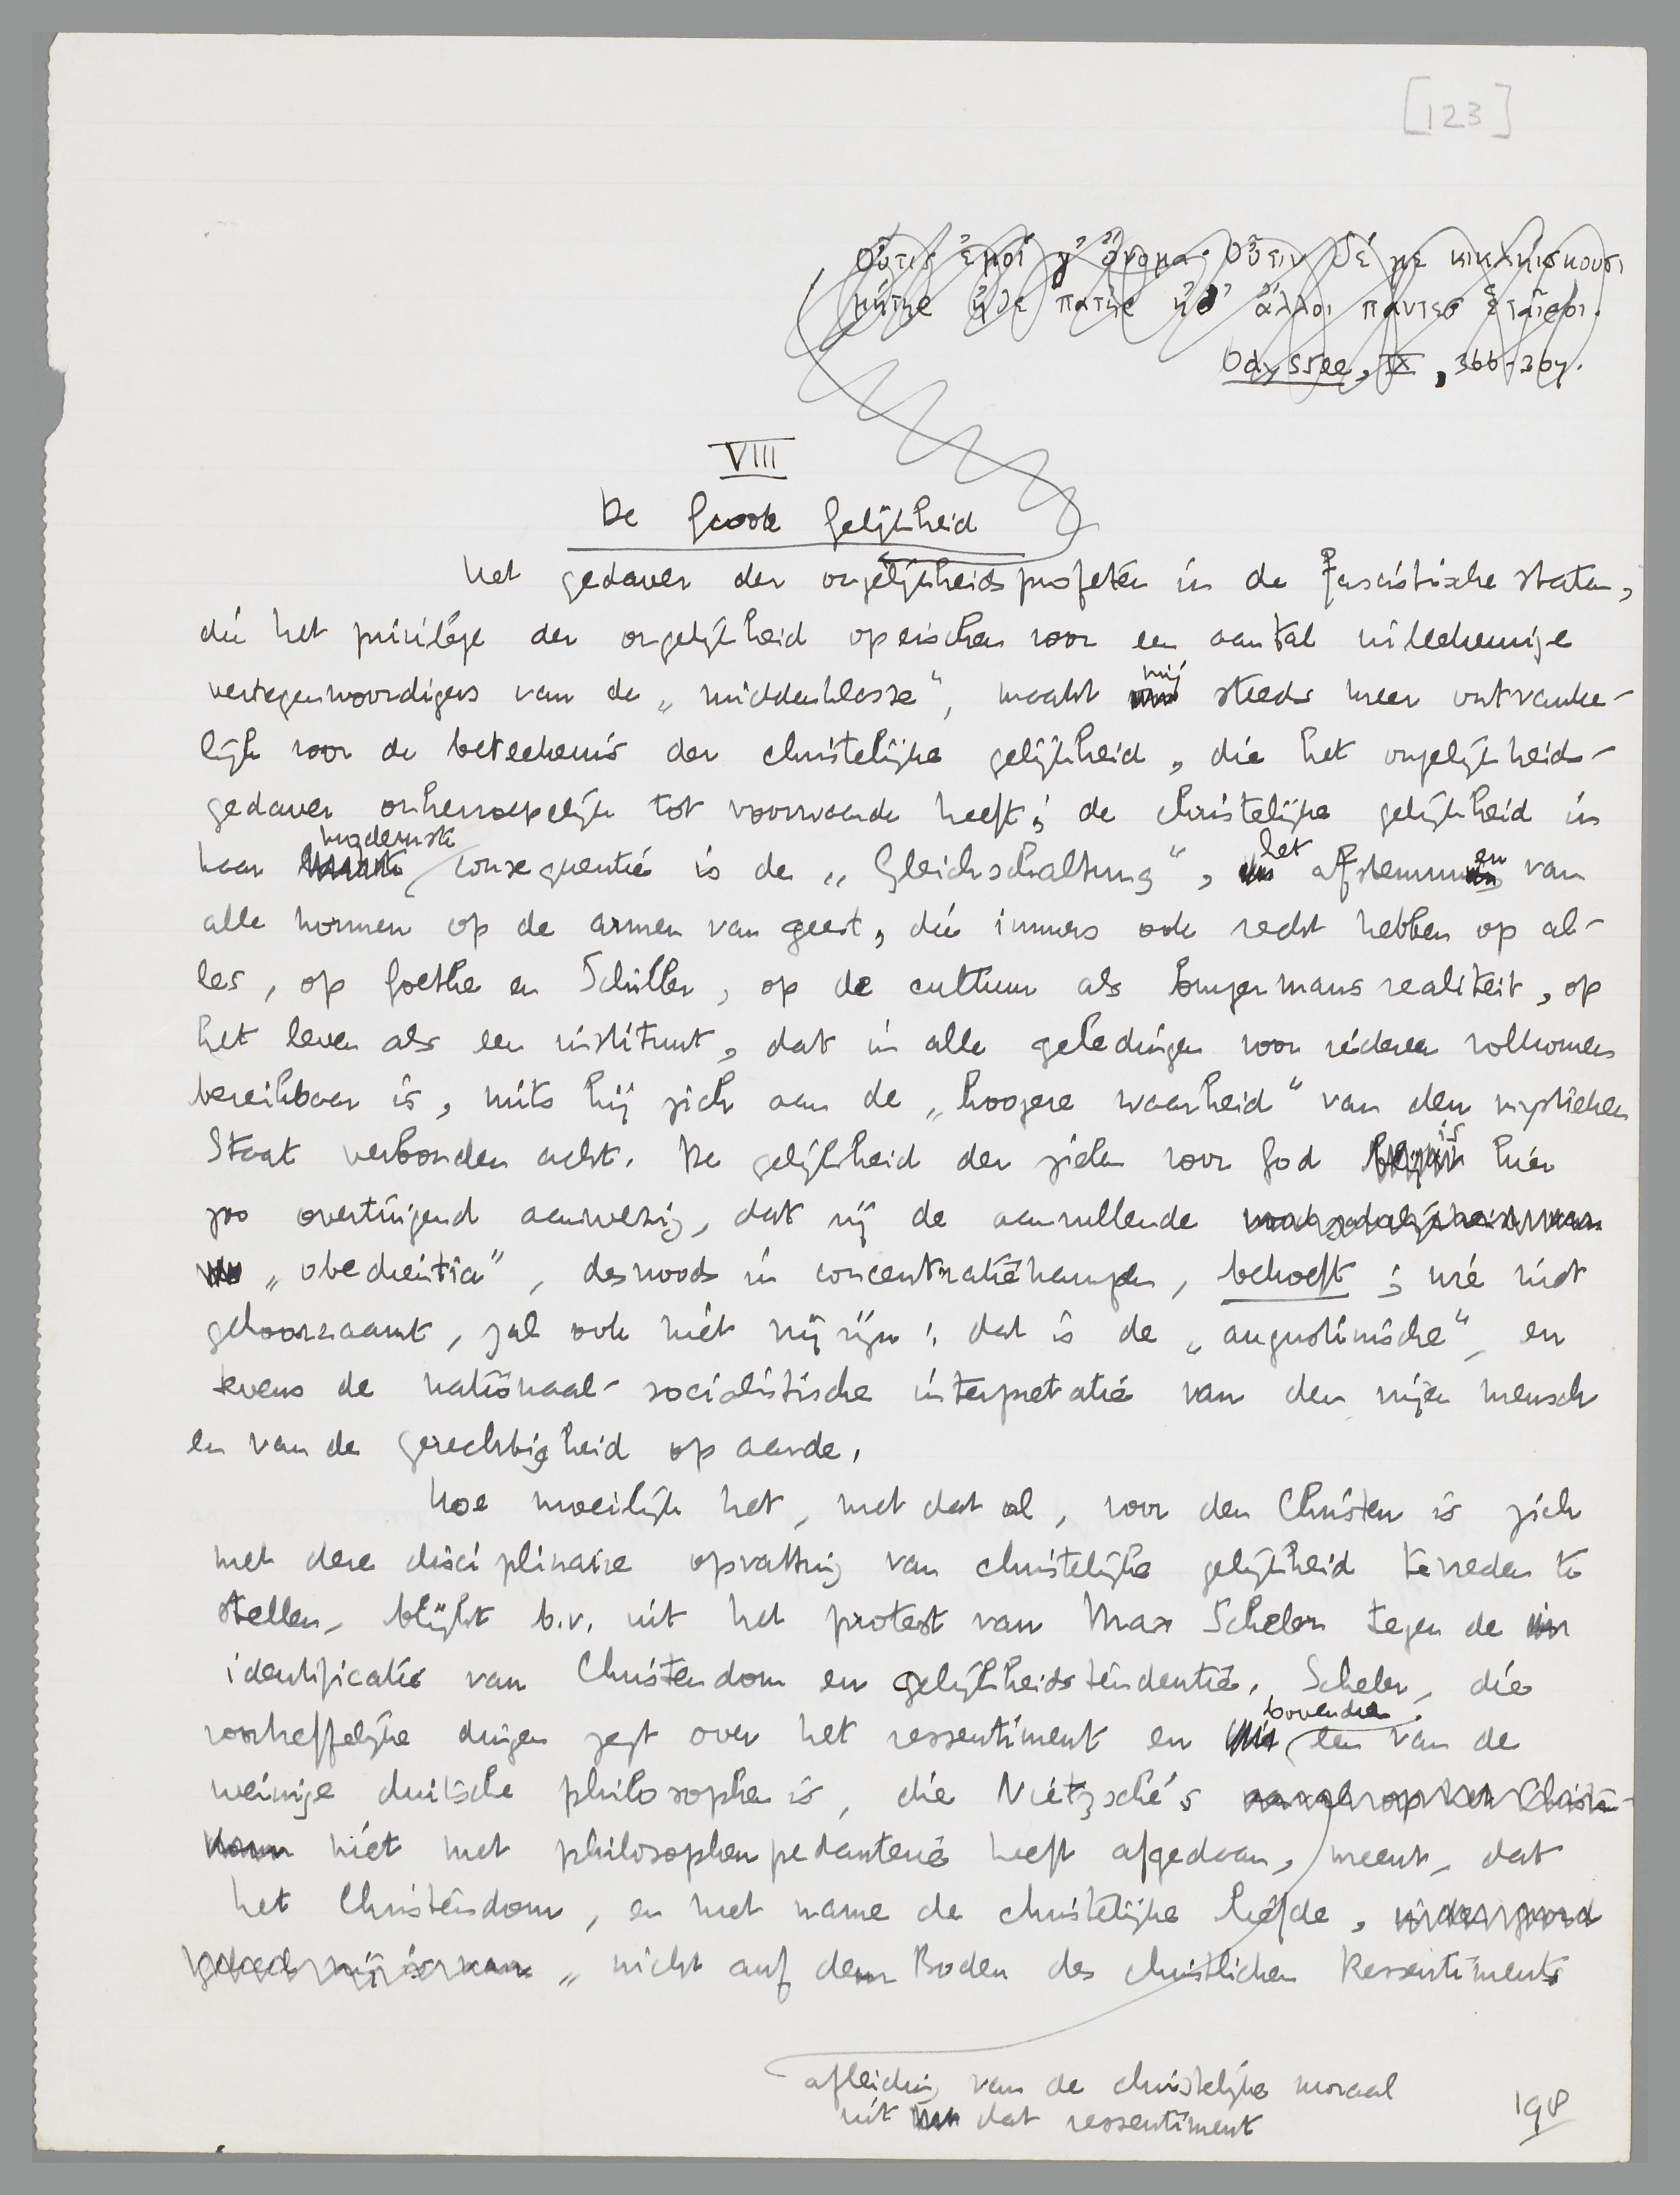 [123]
Οὖτις ἐμοί γ' ὄνομα· Οὖτιν δέ με κικλήσκουσι
μήτηρ ἠδὲ πατὴρ ἠδ' ἄλλοι πάντες ἑταῖροι.
Odyssee, IX, 366-367.
VIII
De Groote Gelijkheid
Het gedaver der ongelijkheidsprofeten in de fascistische staten,
die het privilege der ongelijkheid opeischen voor een aantal willekeurige
vertegenwoordigers van de „middenklasse", maakt mij steeds meer ontvanke-
lijk voor de beteekenis der christelijke gelijkheid, die het ongelijkheids-
gedaver onherroepelijk tot voorwaarde heeft; de christelijke gelijkheid in
haar modernste consequentie is de „Gleichschaltung", het afstemmen van
alle normen op de armen van geest, die immers ook recht hebben op al-
les, op Goethe en Schiller, op de cultuur als burgermansrealiteit, op
het leven als een instituut, dat in alle geledingen voor iedereen volkomen
bereikbaar is, mits hij zich aan de „hoogere waarheid" van den mystieken
Staat verbonden acht. De gelijkheid der zielen voor God is hier
zoo overtuigend aanwezig, dat zij de aanvullende
„obedientia", desnoods in concentratiekampen, behoeft; wie niet
gehoorzaamt, zal ook niet vrij zijn: dat is de „augustinische", en
tevens de nationaal-socialistische interpretatie van den vrijen mensch
en van de gerechtigheid op aarde.
Hoe moeilijk het, met dat al, voor den Christen is zich
met deze disciplinaire opvatting van christelijke gelijkheid tevreden te
stellen, blijkt b.v. uit het protest van Max Scheler tegen de
identificatie van Christendom en gelijkheidstendentie. Scheler, die
voortreffelijke dingen zegt over het ressentiment en bovendien een van de
weinige duitsche philosophen is, die Nietzsche's
niet met philosophenpedanterie heeft afgedaan, meent, dat
het Christendom, en met name de christelijke liefde,
„nicht auf dem Boden des christlichen Ressentiments
afleiding van de christelijke moraal
uit dat ressentiment
198